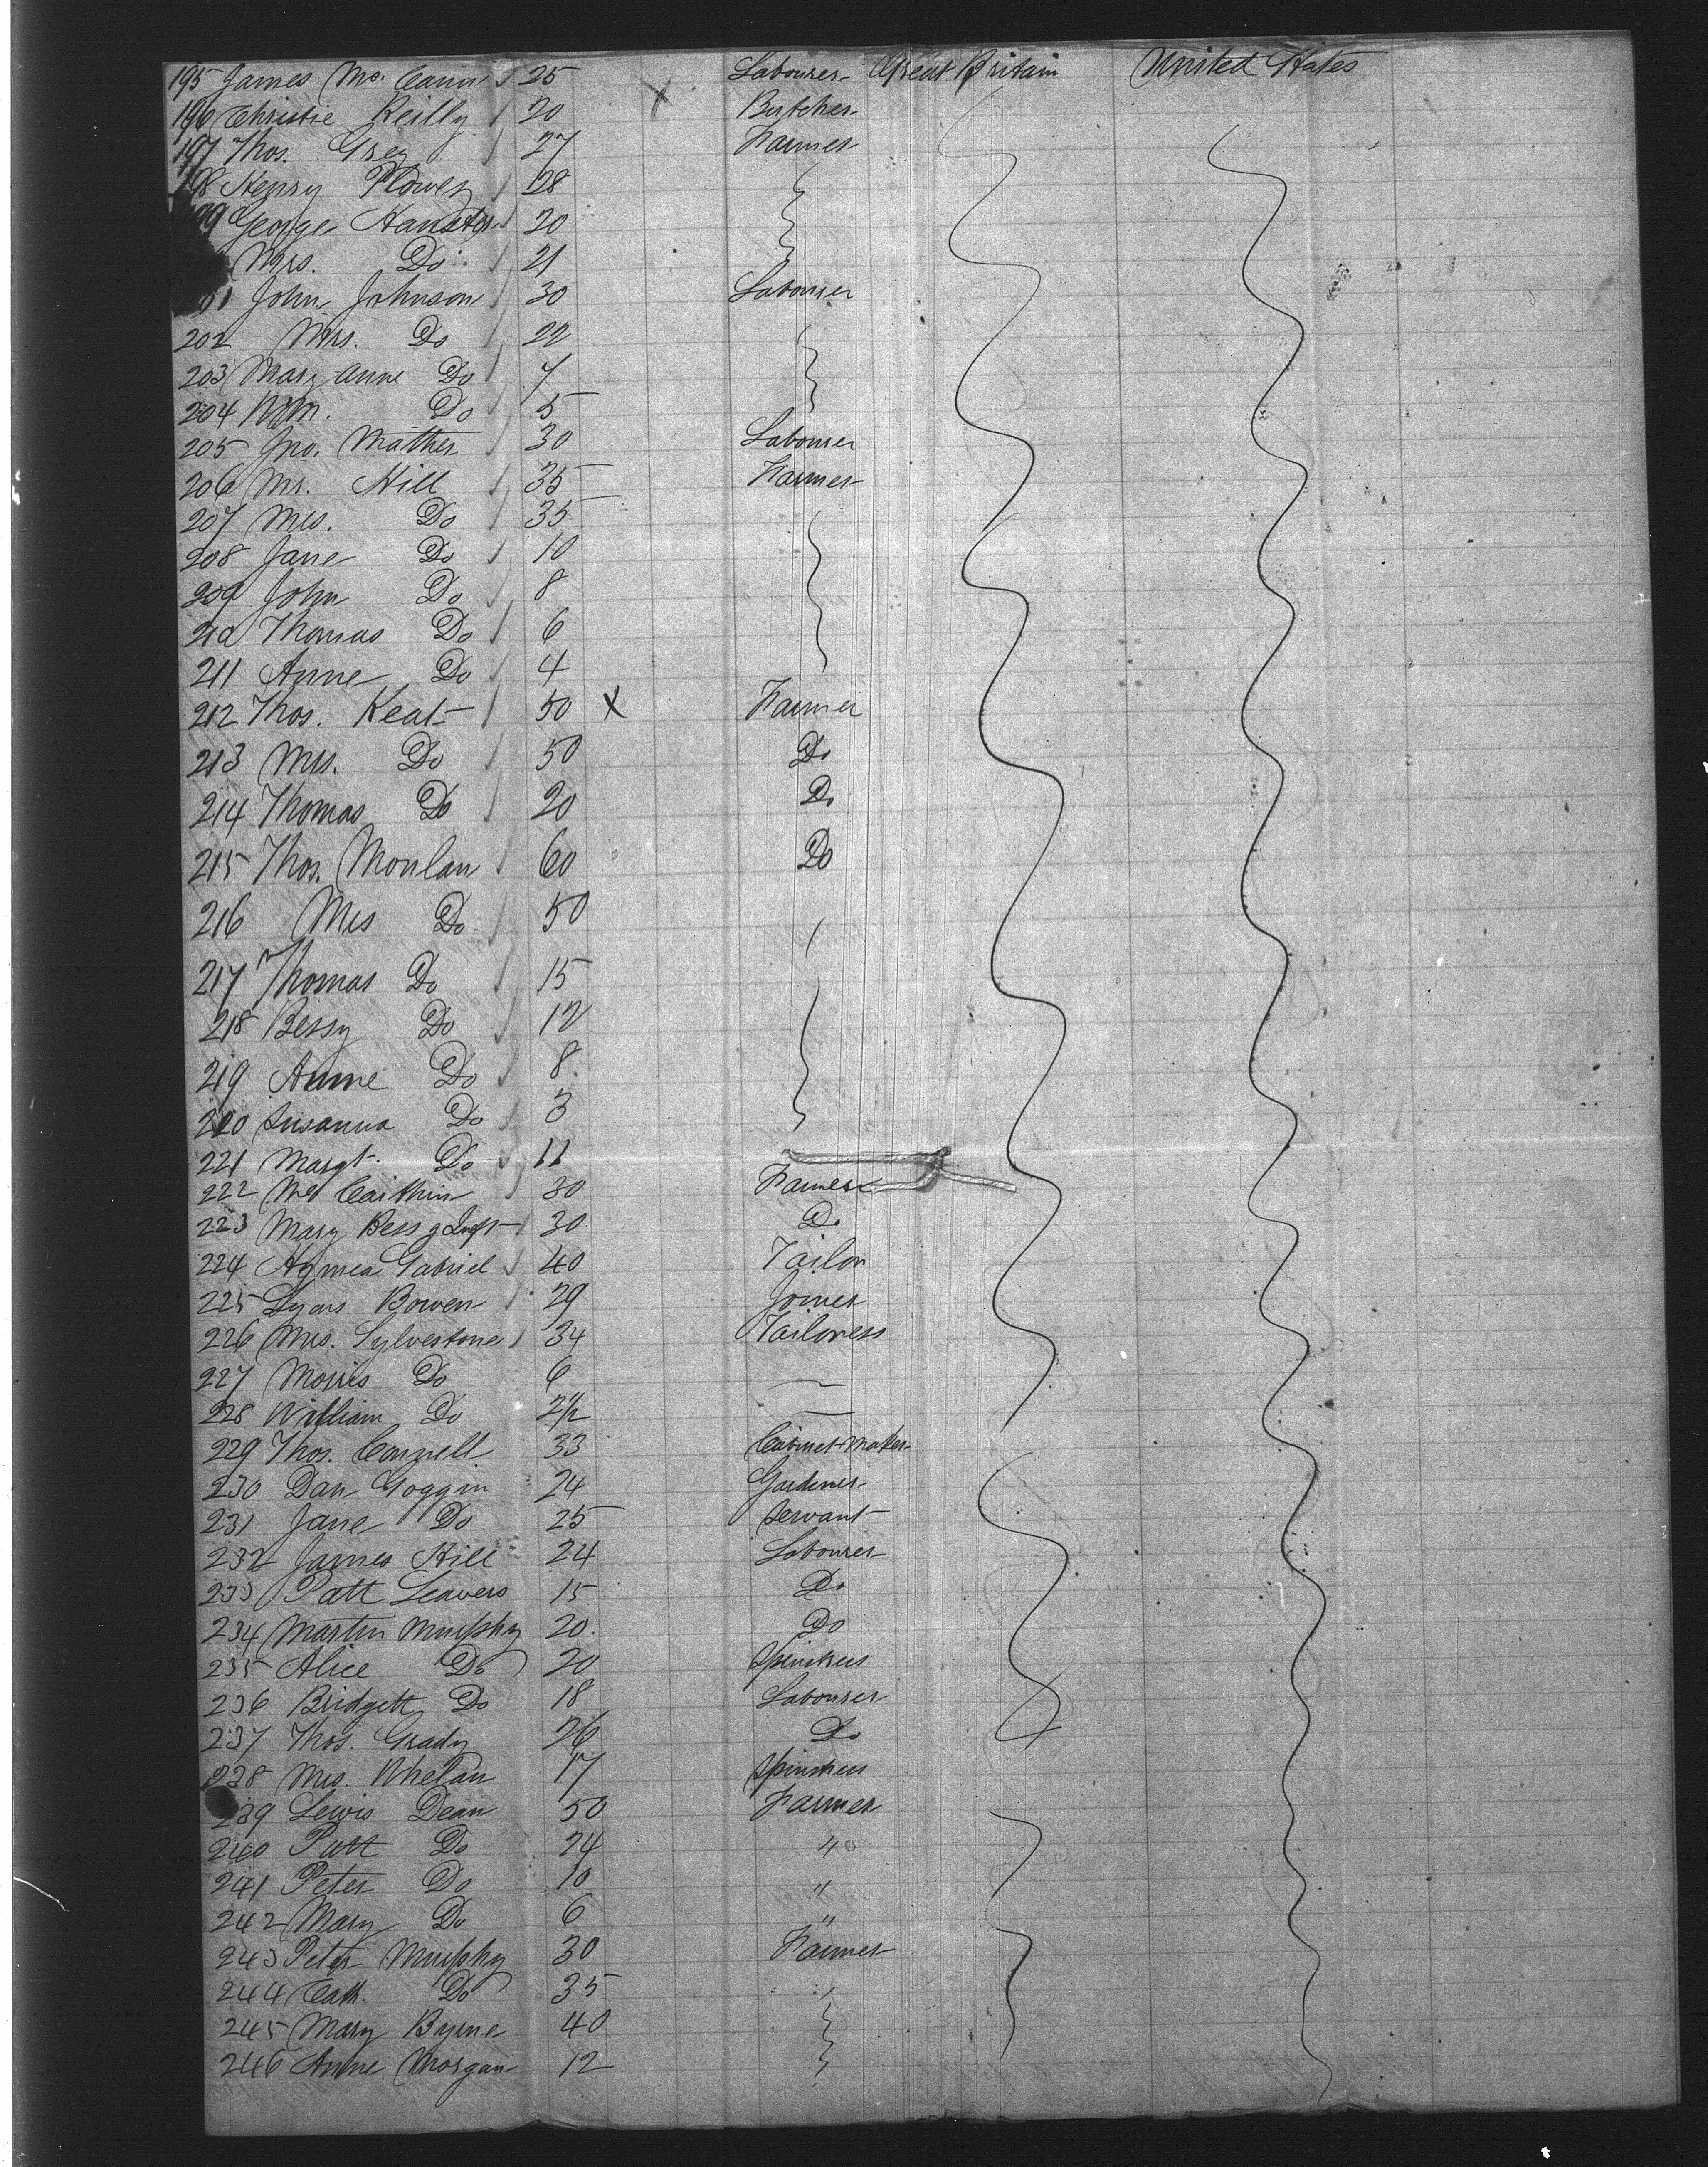 195 James Mc. Cann 25 Labourer Great Britain United States
196 Christie Reilly 20 Butcher
197 Thos. Grey 27 Farmer
198 Henry Plowes 28
199 George 20
Mrs. Do 21
201 John Johnson 30 Labourer
202 Mrs. Do 22
203 Mary Anne Do 7
204 Wm. Do 5
205 Jno. Mather 30 Labourer
206 Mr. Hill 35 Farmer
207 Mrs. Do 35
208 Jane Do 10
209 John Do 8
210 Thomas Do 6
211 Anne Do 4
212 Thos. Keat 50 X Farmer
213 Mrs. Do 50 Do
214 Thomas Do 20 Do
215 Thos. Monlan 60 Do
216 Mrs Do 50
217 Thomas Do 15
218 Bessy Do 12
219 Anne Do 8.
220 Susanna Do 3
221 Margt. Do 11
222 Mc Caithin 30 Farmer
223 Mary Bessy 30 Do
224 Gabriel 40 Tailor
225 Lyons Bowen 29 Joiner
226 Mrs. Sylvestone 34 Tailoress
227 Morris Do 6
228 William Do 2 1/2
229 Thos. Connell 33 Cabinet-maker
230 Dan Goggin 24 Gardener
231 Jane Do 25 Servant
232 James Hill 24 Labourer
233 Patt Leavers 15 Do
234 Martin Murphy 20. Do
235 Alice Do 20 Spinsters
236 Bridgett Do 18 Labourer
237 Thos. Grady 26 Do
238 Mrs. Whelan 17 Spinsters
239 Lewis Dean 50 Farmer
240 Patt Do 24 "
241 Peter Do 10 "
242 Mary Do 6 "
243 Peter Murphy 30 Farmer
244 Cath. Do 35
245 Mary Byrne 40
246 Anne Morgan 12